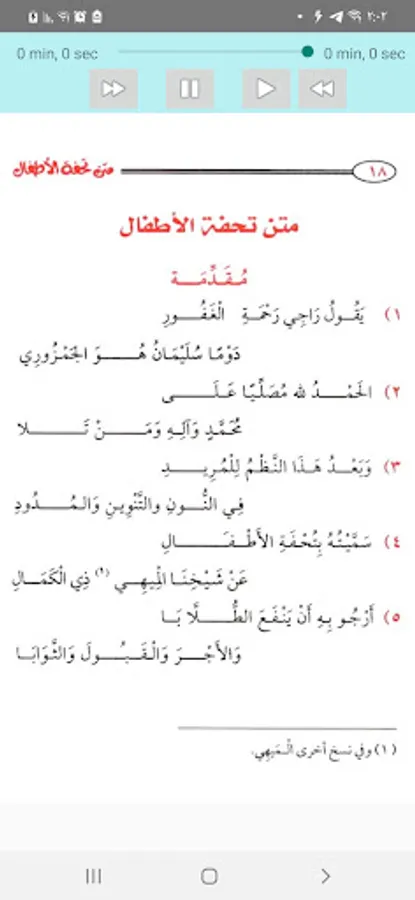 ٢:٠٢
0 min, 0 sec 0 min, 0 sec
١٨ متن تحفة الأطفال
متن تحفة الأطفال
مُقَدِّمَة
١) يَقُولُ رَاجِي رَحْمَةِ الْغَفُورِ
دَوْمًا سُلَيْمَانُ هُوَ الجَمْزُورِي
٢) الحَمْدُ لله مُصَلِّيًا عَلَى
مُحَمَّدٍ وَآلِهِ وَمَنْ تَلا
٣) وَبَعْدُ هَذَا النَّظْمُ لِلْمُرِيدِ
فِي النُّونِ والتَّنْوِينِ وَالمُدُودِ
٤) سَمَّيْتُهُ بِتُحْفَةِ الأَطْفَالِ
عَنْ شَيْخِنَا المِيهِي (١) ذِي الْكَمَالِ
٥) أَرْجُو بِهِ أَنْ يَنْفَعَ الطُّلَّابَا
وَالأَجْرَ وَالْقَبُولَ وَالثَّوَابَا
(١) وفي نسخ أخرى الْمَيهِي.